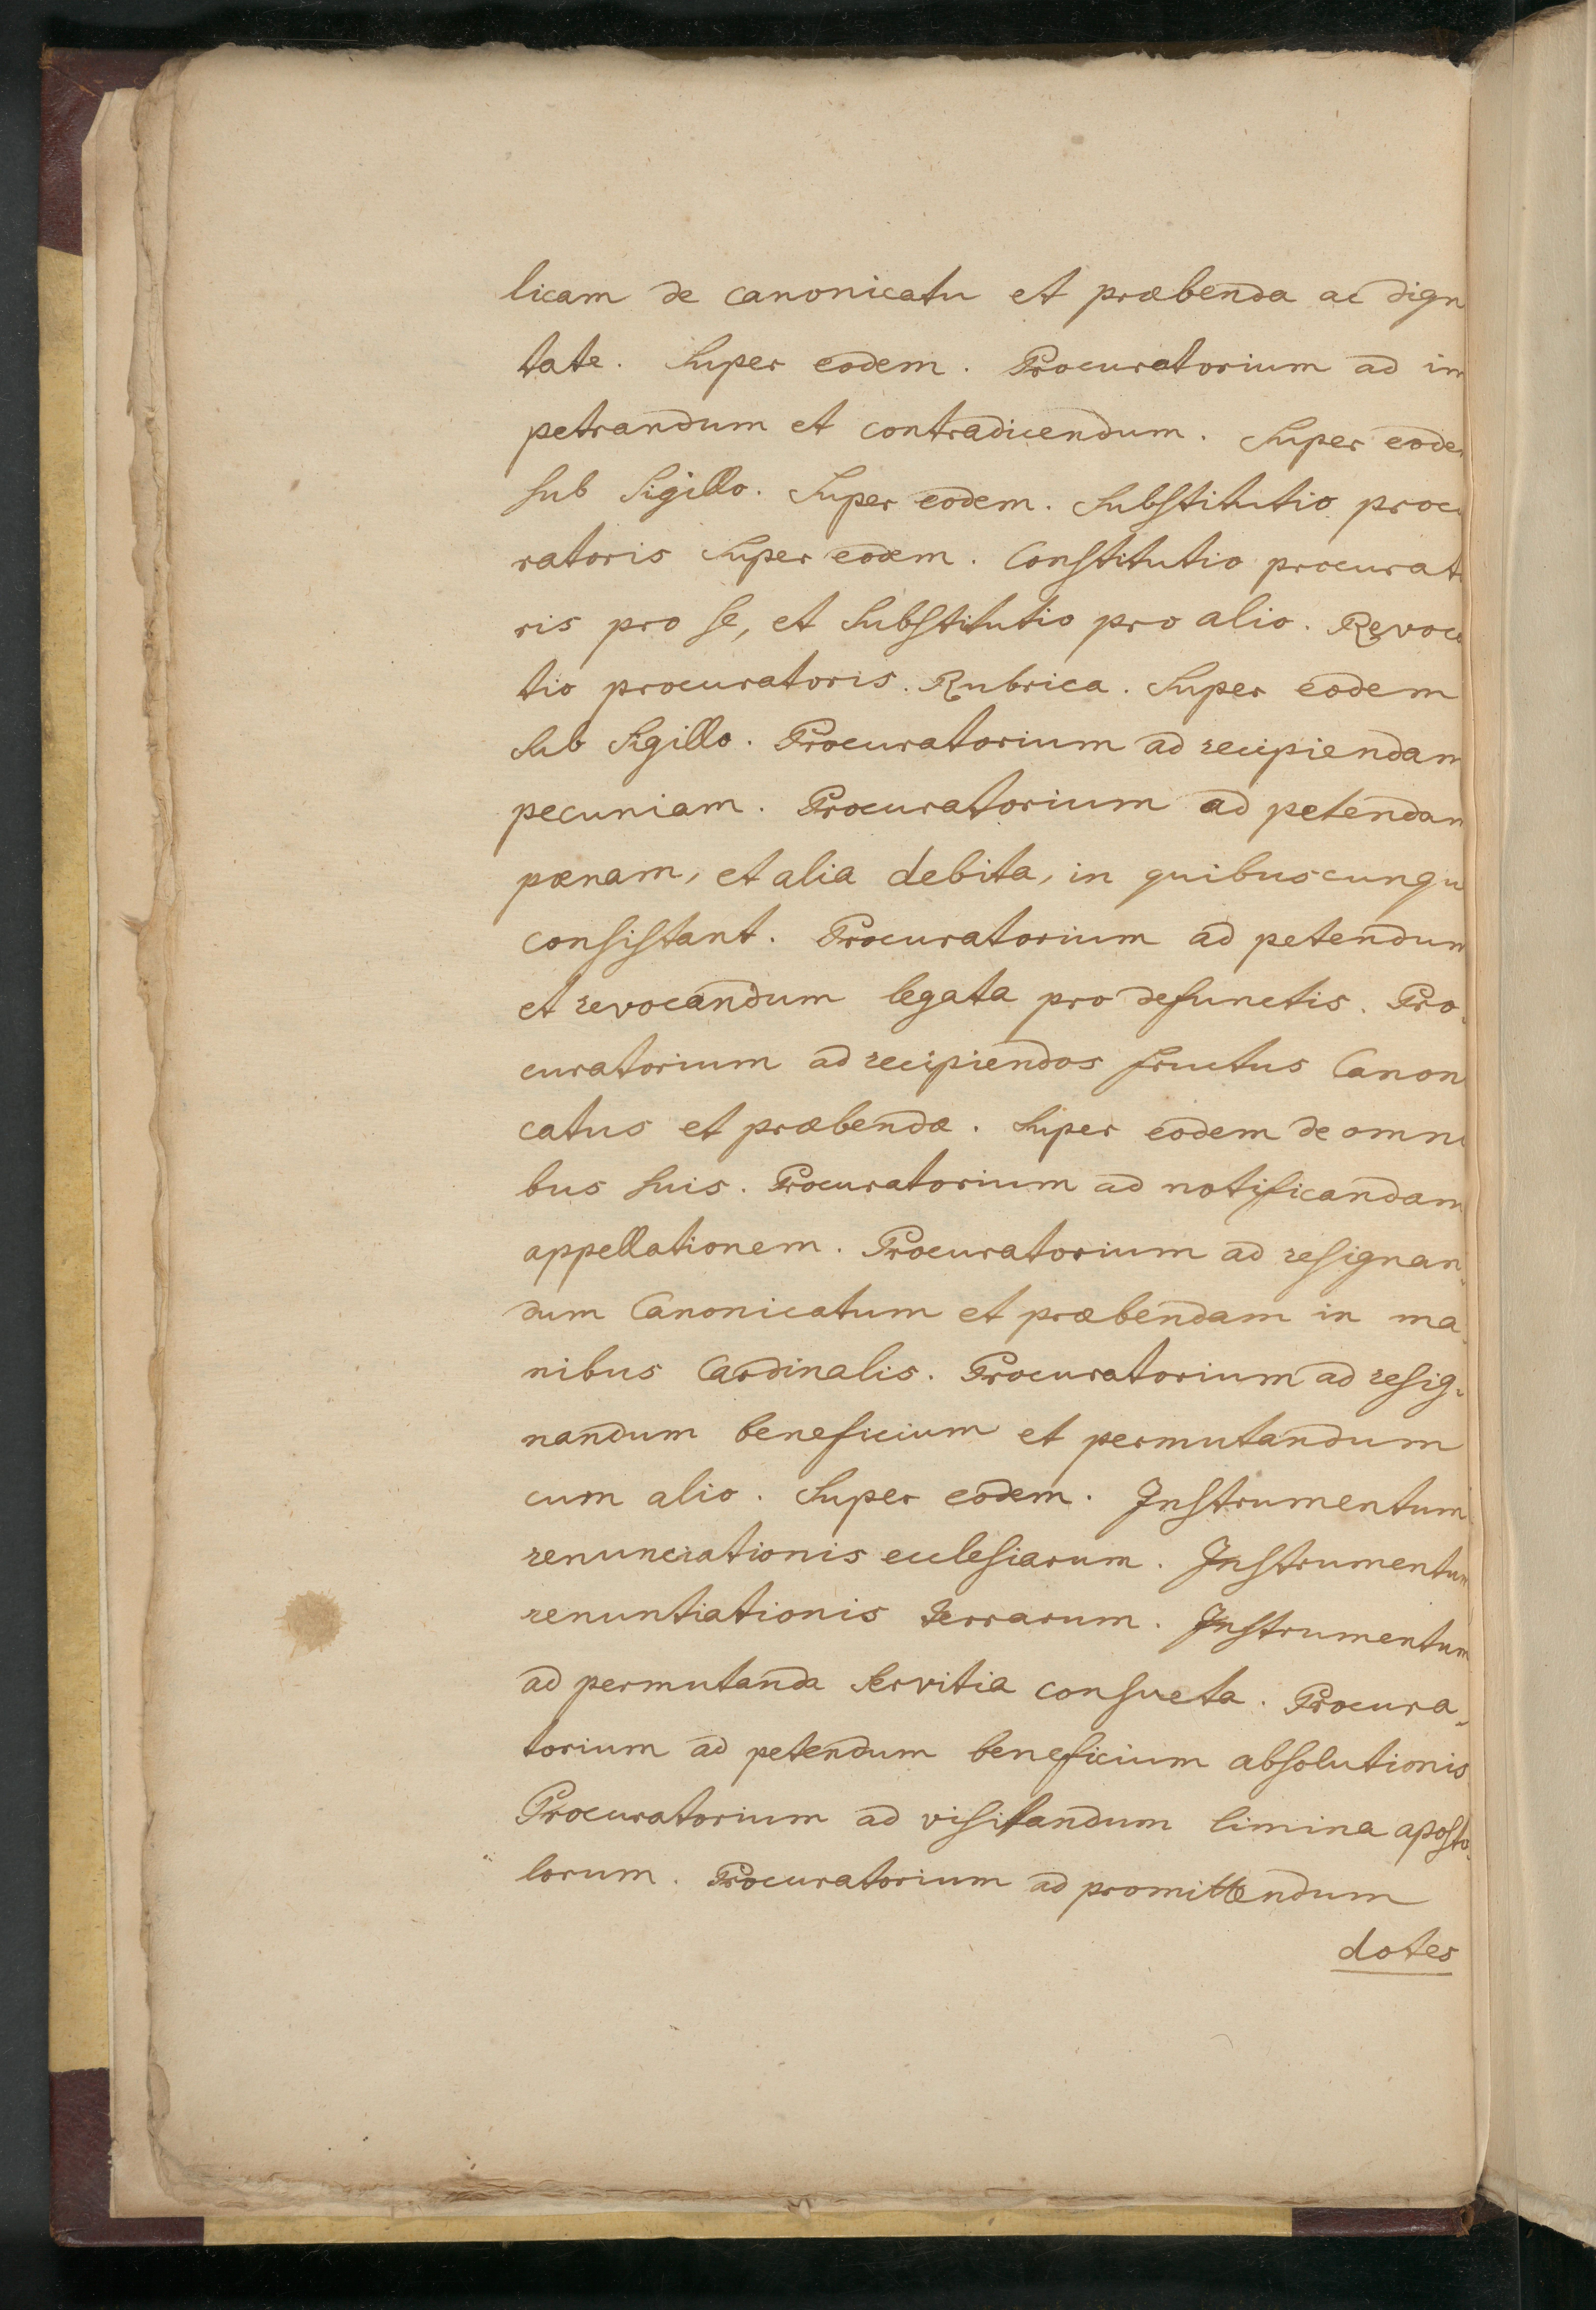 licam de canonicatu et præbenda ac dign
tate. Super eodem. Procuratorium ad im
petrandum et contradicendum. Super eodem
sub Sigillo. Super eodem. Substitutio procu
ratoris Super eodem. Constitutio procurato
ris pro se, et Substitutio pro alio. Revoca
tio procuratoris. Rubrica. Super eodem
Sub Sigillo. Procuratorium ad recipiendam
pecuniam. Procuratorium ad petendam
pœnam, et alia debita, in quibuscunqu
consistant. Procuratorium ad petendum
et revocandum legata pro defunctis. Pro-
curatorium ad recipiendos fructus Canon
catus et præbendæ. Super eodem de omni
bus suis. Procuratorium ad notificandam
appellationem. Procuratorium ad resignan-
dum Canonicatum et præbendam in ma-
nibus Cardinalis. Procuratorium ad resig-
nandum beneficium et permutandum
cum alio. Super eodem. Instrumentum
renunciationis ecclesiarum. Instrumentum
renuntiationis terrarum. Instrumentum
ad permutanda Servitia consueta. Procura-
torium ad petendum beneficium absolutionis
Procuratorium ad visitandum limina aposto-
lorum. Procuratorium ad promittendum
dotes